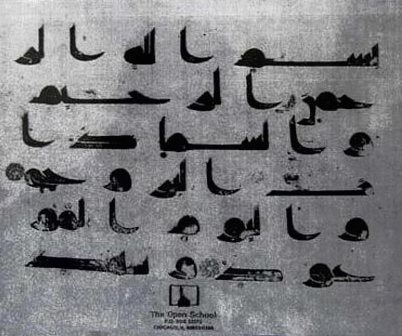 بسم ا لله ا لر
حمن ا لر حيم
و ا لسما د ا
ت ا لبر و ج
و ا ليو م ا لمو
عو د و سهد
The Open School
P.O. BOX
CHICAGO, IL